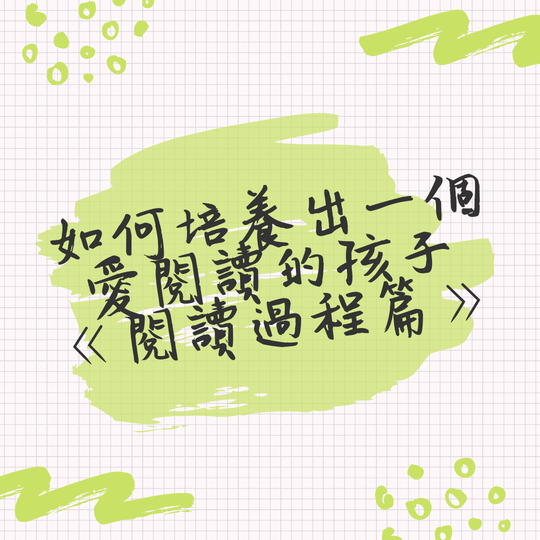 如何培養出一個
愛閱讀的孩子
《閱讀過程篇》